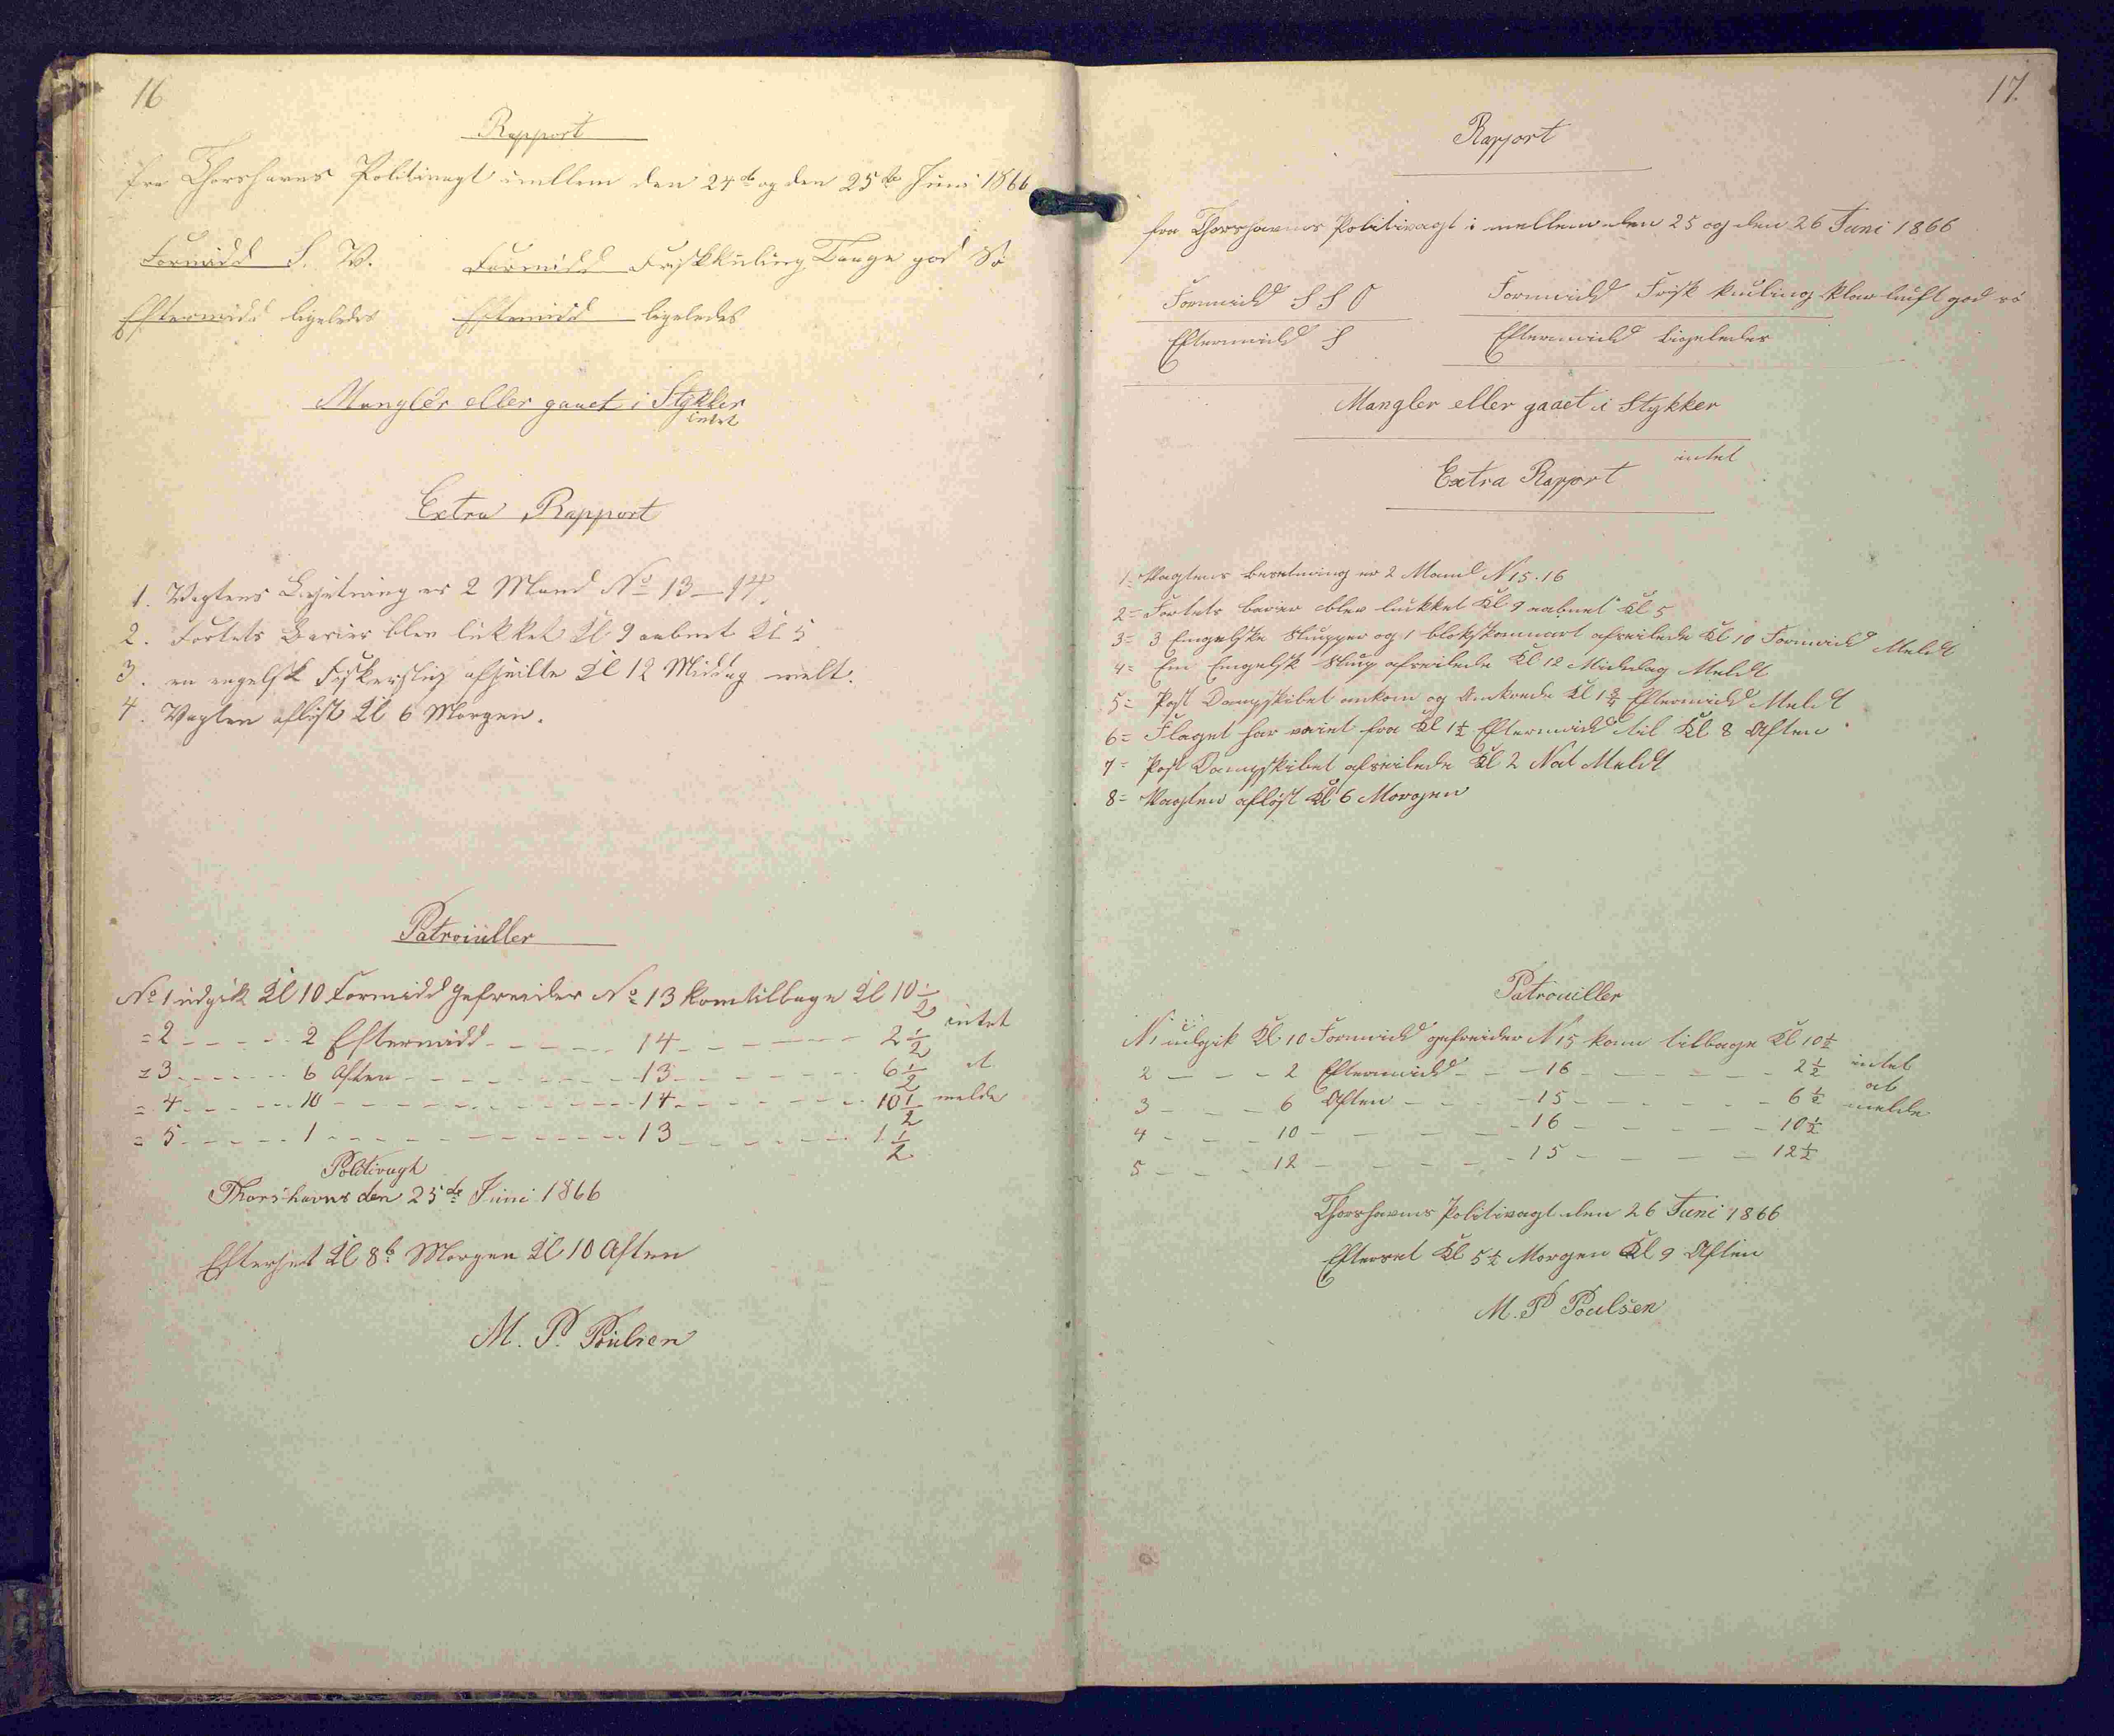 16
Rapport
fra Thorshavns Politivagt imellem den 24de og den 25de Juni 1866
Formidd S. V. Formidd Friskkuling Taage god Sø
Eftermidd ligeledes Eftermidd ligeledes
Mangler eller gaaet i Stykker
intet
Extra Rapport
1. Vagtens Besetning er 2 Mand No 13 - 14
2. Fortets Barier blev lukket Kl 9 aabnet Kl 5
3. en engelsk Fiskerslup afseilte Kl 12 Middag melt.
4. Vagten afløst Kl 6 Morgen.
Patrouiller
No 1 udgik Kl 10 Formidd Gefreider No 13 kom tilbage Kl 10 1/2
= 2 - - - - 2 Eftermidd - - - - 14 - - - - 2 1/2 intet
= 3 - - - - 6 Aften - - - - 13 - - - - 6 1/2 at
= 4 - - - - 10 - - - - 14 - - - - 10 1/2 melde
= 5 - - - - 1 - - - - 13 - - - - 1 1/2
Politivagt
Thorshavns den 25de Juni 1866
Efterset Kl 8 Morgen Kl 10 Aften
M. P. Poulsen
17.
Rapport
fra Thorshavns Politivagt i mellem den 25 og den 26 Juni 1866
Formidd S S O Formidd Frisk kuling klar luft god sö
Eftermidd S Eftermidd Ligeledes
Mangler eller gaaet i Stykker
intet
Extra Rapport
1= Vagtens besetning er 2 Mand N 15. 16
2= Fortets barier blev lukket Kl 9 aabnet Kl 5
3= 3 Engelske Slupper og 1 afseilede Kl 10 Formidd Meldt
4= Em Engelsk Slup afseilede Kl 12 Middag Meldt
5= Post Dampskibet ankom og Ankrede Kl 1 3/4 Eftermidd Meldt
6= Flaget har vaiet fra Kl 1 1/2 Eftermidd til Kl 8 Aften
7= Post Dampskibet afseilede Kl 2 Nat Meldt
8= Vagten afløst Kl 6 Morgen
Patrouiller
N 1 udgik Kl 10 Formidd gefreider N 15 kom tilbage Kl 10 1/2
2 - - - 2 Eftermidd - - - 16 - - - - 2 1/2 intet
3 - - - 6 Aften - - - 15 - - - - 6 1/2 at
4 - - - 10 - - - - 16 - - - - 10 1/2 melde
5 - - - 12 - - - - 15 - - - - 12 1/2
Thorshavns Politivagt den 26 Juni 1866
Efterset Kl 5 1/2 Morgen Kl 9 Aften
M. P Poulsen